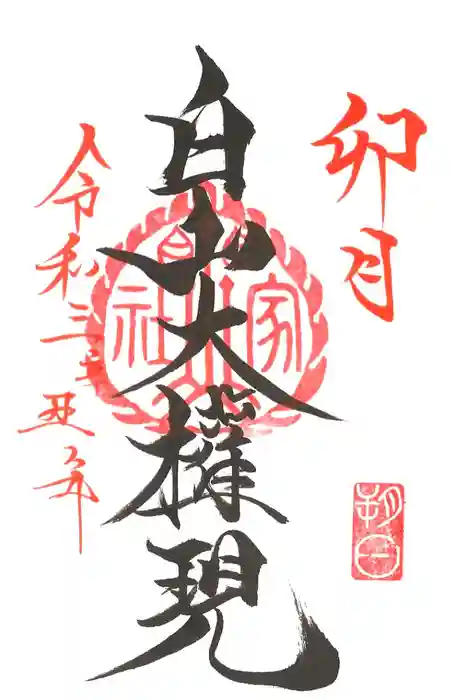 卯月
白山大権現
令和三辛丑年
朝日